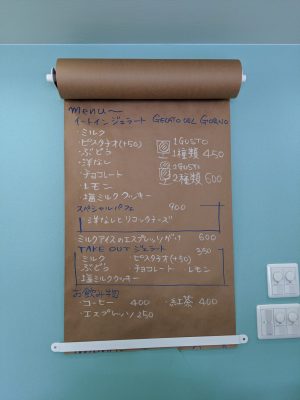 menu〜
イートイン ジェラート GELATO DEL GIORNO
・ミルク
・ピスタチオ(+50)
・ぶどう
・洋なし
・チョコレート
・レモン
・塩ミルククッキー
1GUSTO
1種類 450
2GUSTI
2種類 600
スペシャルパフェ 900
洋なしとリコッタチーズ
ミルクアイスのエスプレッソがけ 600
TAKE OUT ジェラート 350
・ミルク ・ピスタチオ(+50)
・ぶどう ・チョコレート ・レモン
・塩ミルククッキー
お飲み物
・コーヒー 400 ・紅茶 400
・エスプレッソ 250